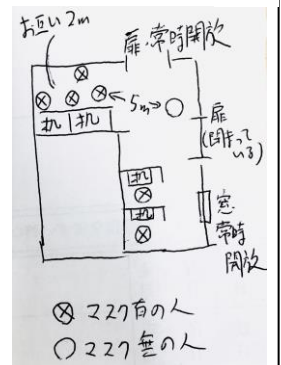 お互い2m
扉常時開放
5m
机
机
扉
(閉まって
いる)
机
机
窓
常時
開放
マスク有の人
マスク無の人